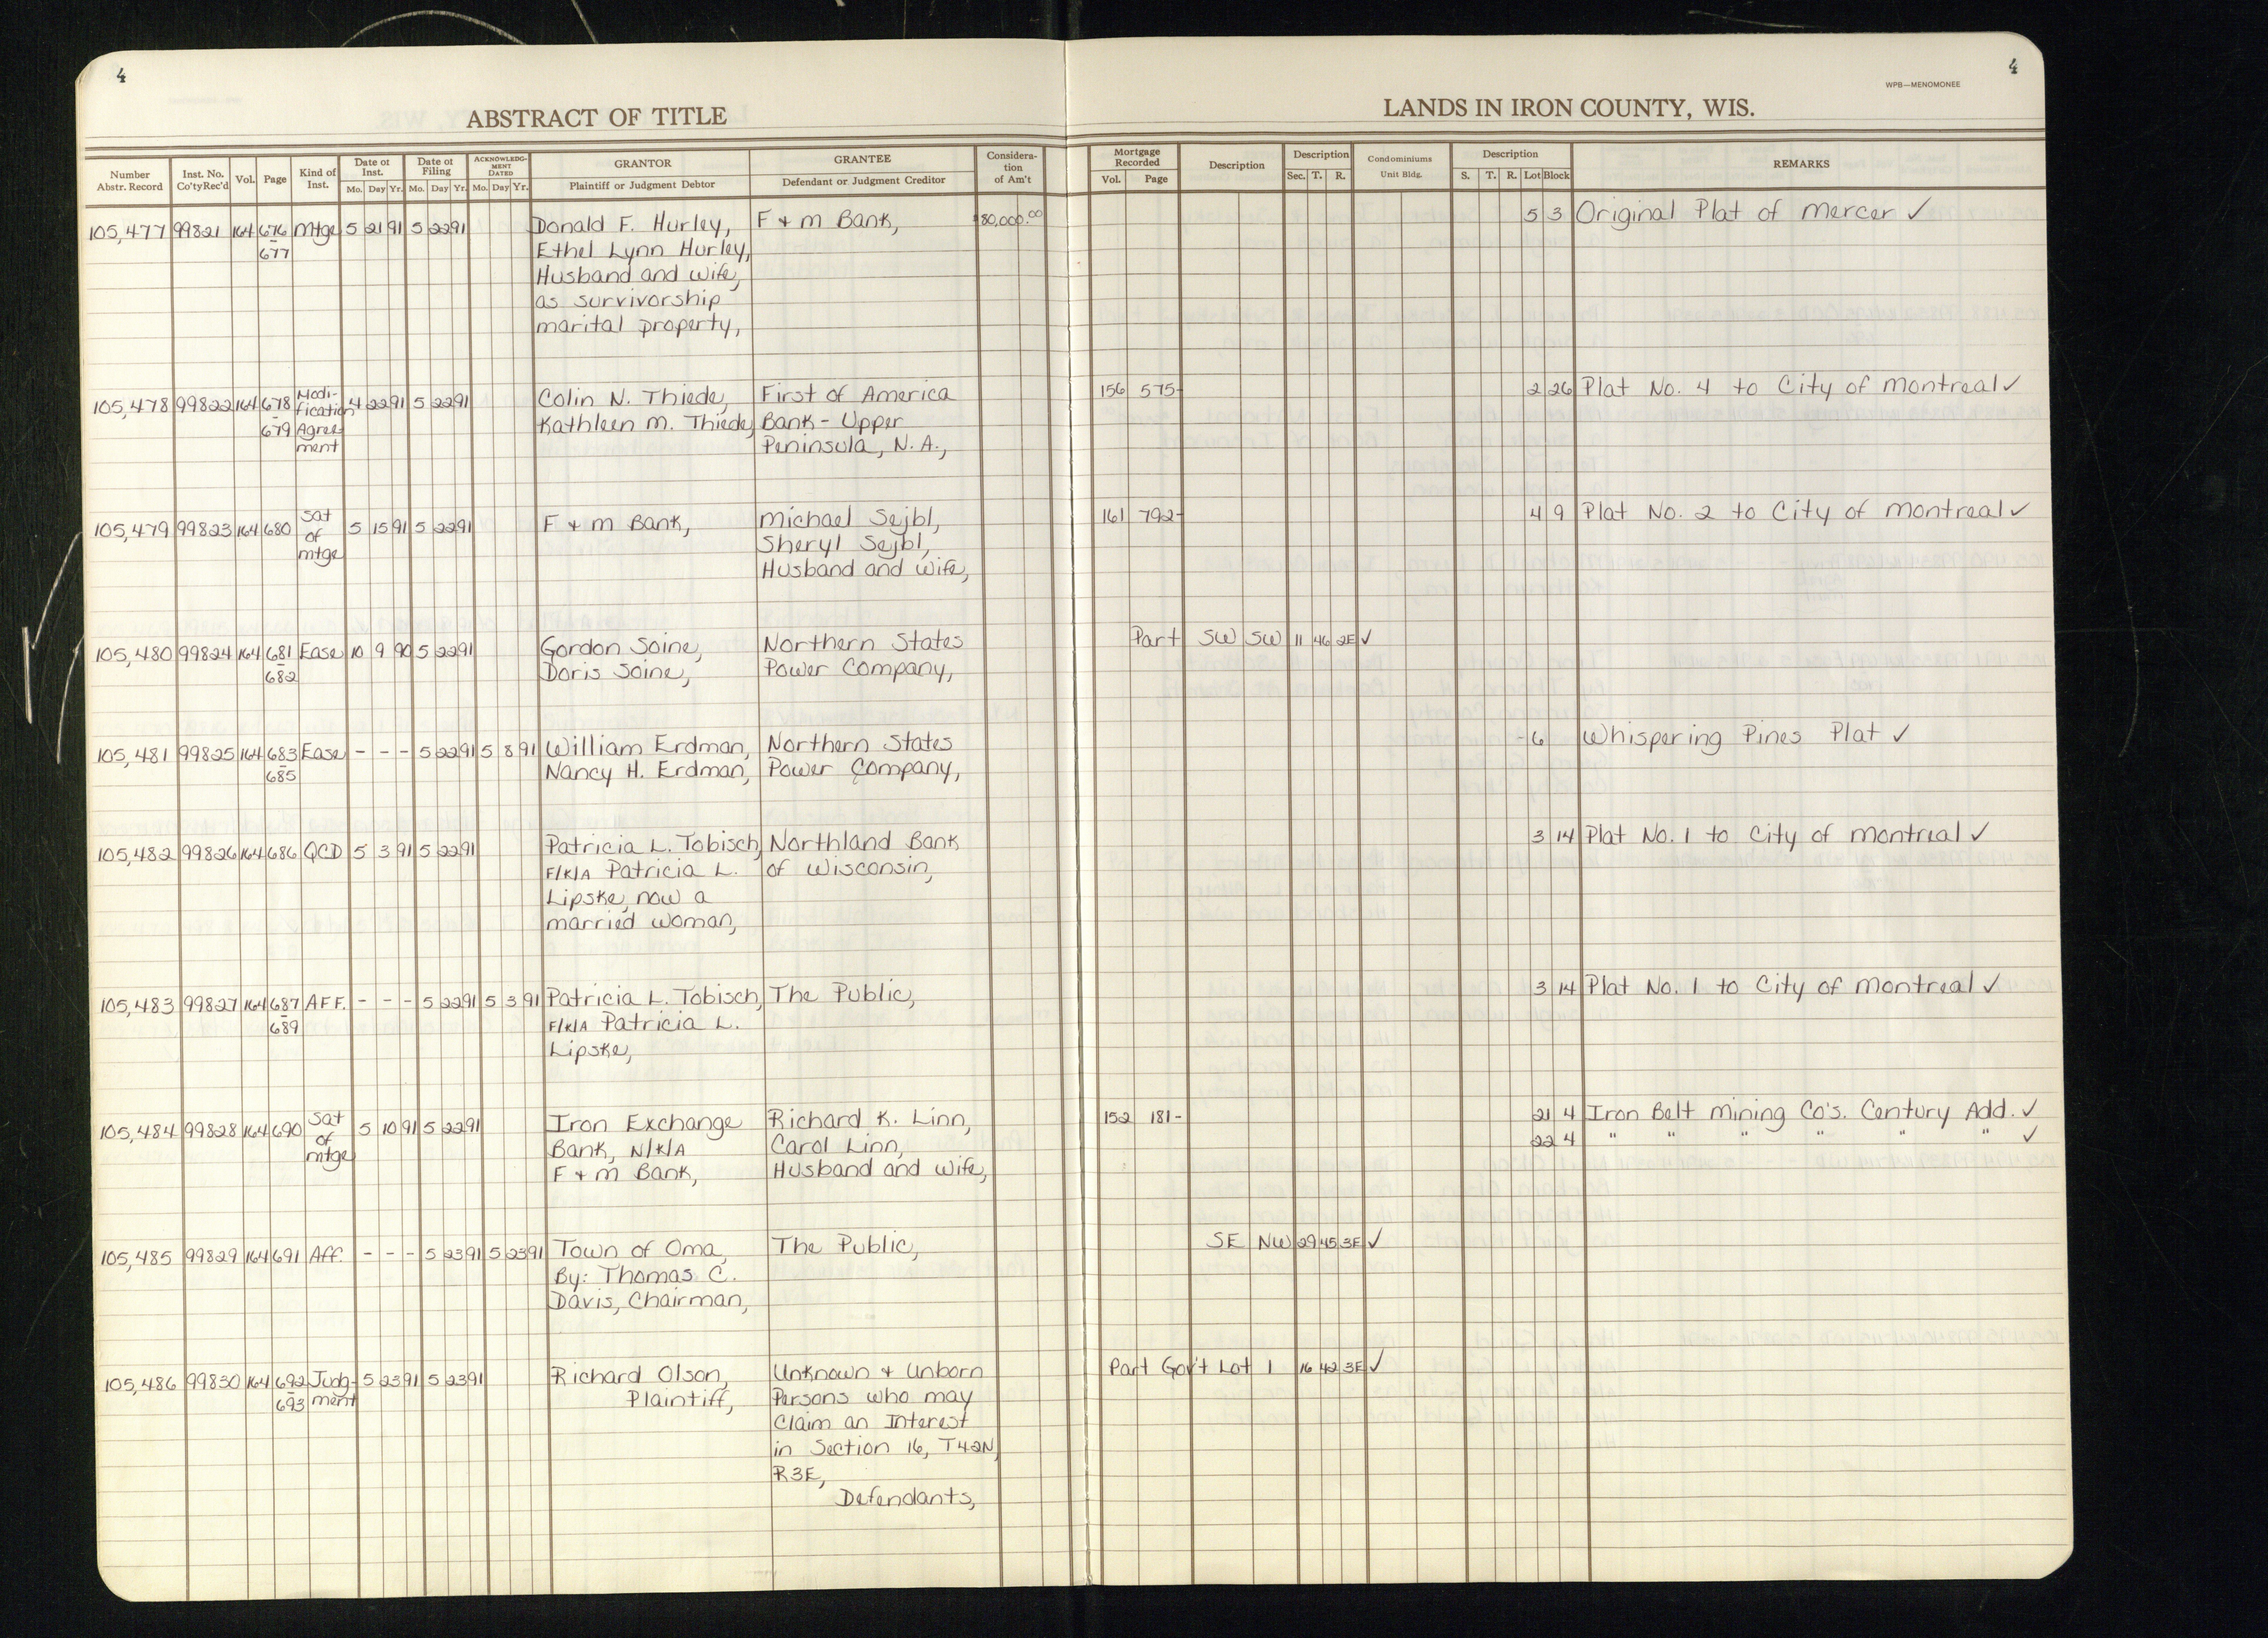 4
4
WPB—MENOMONEE
ABSTRACT OF TITLE
LANDS IN IRON COUNTY, WIS.
Number Abstr. Record | Inst. No. Co'ty Rec'd | Vol. | Page | Kind of Inst. | Date of Inst. Mo. Day Yr. | Date of Filing Mo. Day Yr. | ACKNOWLEDGMENT DATED Mo. Day Yr. | GRANTOR Plaintiff or Judgment Debtor | GRANTEE Defendant or Judgment Creditor | Consideration of Am't | Mortgage Recorded Vol. Page | Description | Description Sec. T. R. | Condominiums Unit Bldg. | Description S. T. R. Lot Block | REMARKS
105,477 99821 164 676 Mtge 5 21 91 5 22 91 Donald F. Hurley, F & M Bank, $80,000.00 5 3 Original Plat of Mercer ✓
- 677 Ethel Lynn Hurley,
Husband and Wife,
as survivorship
marital property,
105,478 99822 164 678 Modi- 4 22 91 5 22 91 Colin N. Thiede, First of America 156 575- 2 26 Plat No. 4 to City of Montreal ✓
- 679 fication Kathleen M. Thiede, Bank - Upper
Agree- Peninsula, N.A.,
ment
105,479 99823 164 680 Sat 5 15 91 5 22 91 F & M Bank, Michael Sejbl, 161 792- 4 9 Plat No. 2 to City of Montreal ✓
of Sheryl Sejbl,
mtge Husband and Wife,
105,480 99824 164 681 Ease 10 9 90 5 22 91 Gordon Soine, Northern States Part SW SW 11 46 2E ✓
- 682 Doris Soine, Power Company,
105,481 99825 164 683 Ease - - - 5 22 91 5 8 91 William Erdman, Northern States -6 Whispering Pines Plat ✓
- 685 Nancy H. Erdman, Power Company,
105,482 99826 164 686 QCD 5 3 91 5 22 91 Patricia L. Tobisch, Northland Bank 3 14 Plat No. 1 to City of Montreal ✓
F/K/A Patricia L. of Wisconsin,
Lipske, now a
married woman,
105,483 99827 164 687 AFF. - - - 5 22 91 5 3 91 Patricia L. Tobisch, The Public, 3 14 Plat No. 1 to City of Montreal ✓
- 689 F/K/A Patricia L.
Lipske,
105,484 99828 164 690 Sat 5 10 91 5 22 91 Iron Exchange Richard K. Linn, 152 181- 21 4 Iron Belt Mining Co's. Century Add. ✓
of Bank, N/K/A Carol Linn, 22 4 " " " " " " ✓
mtge F & M Bank, Husband and Wife,
105,485 99829 164 691 Aff. - - - 5 23 91 5 23 91 Town of Oma, The Public, SE NW 29 45 3E ✓
By: Thomas C.
Davis, Chairman,
105,486 99830 164 692 Judg- 5 23 91 5 23 91 Richard Olson, Unknown & Unborn Part Gov't Lot 1 16 42 3E ✓
- 693 ment Plaintiff, Persons who may
Claim an Interest
in Section 16, T42N,
R3E,
Defendants,